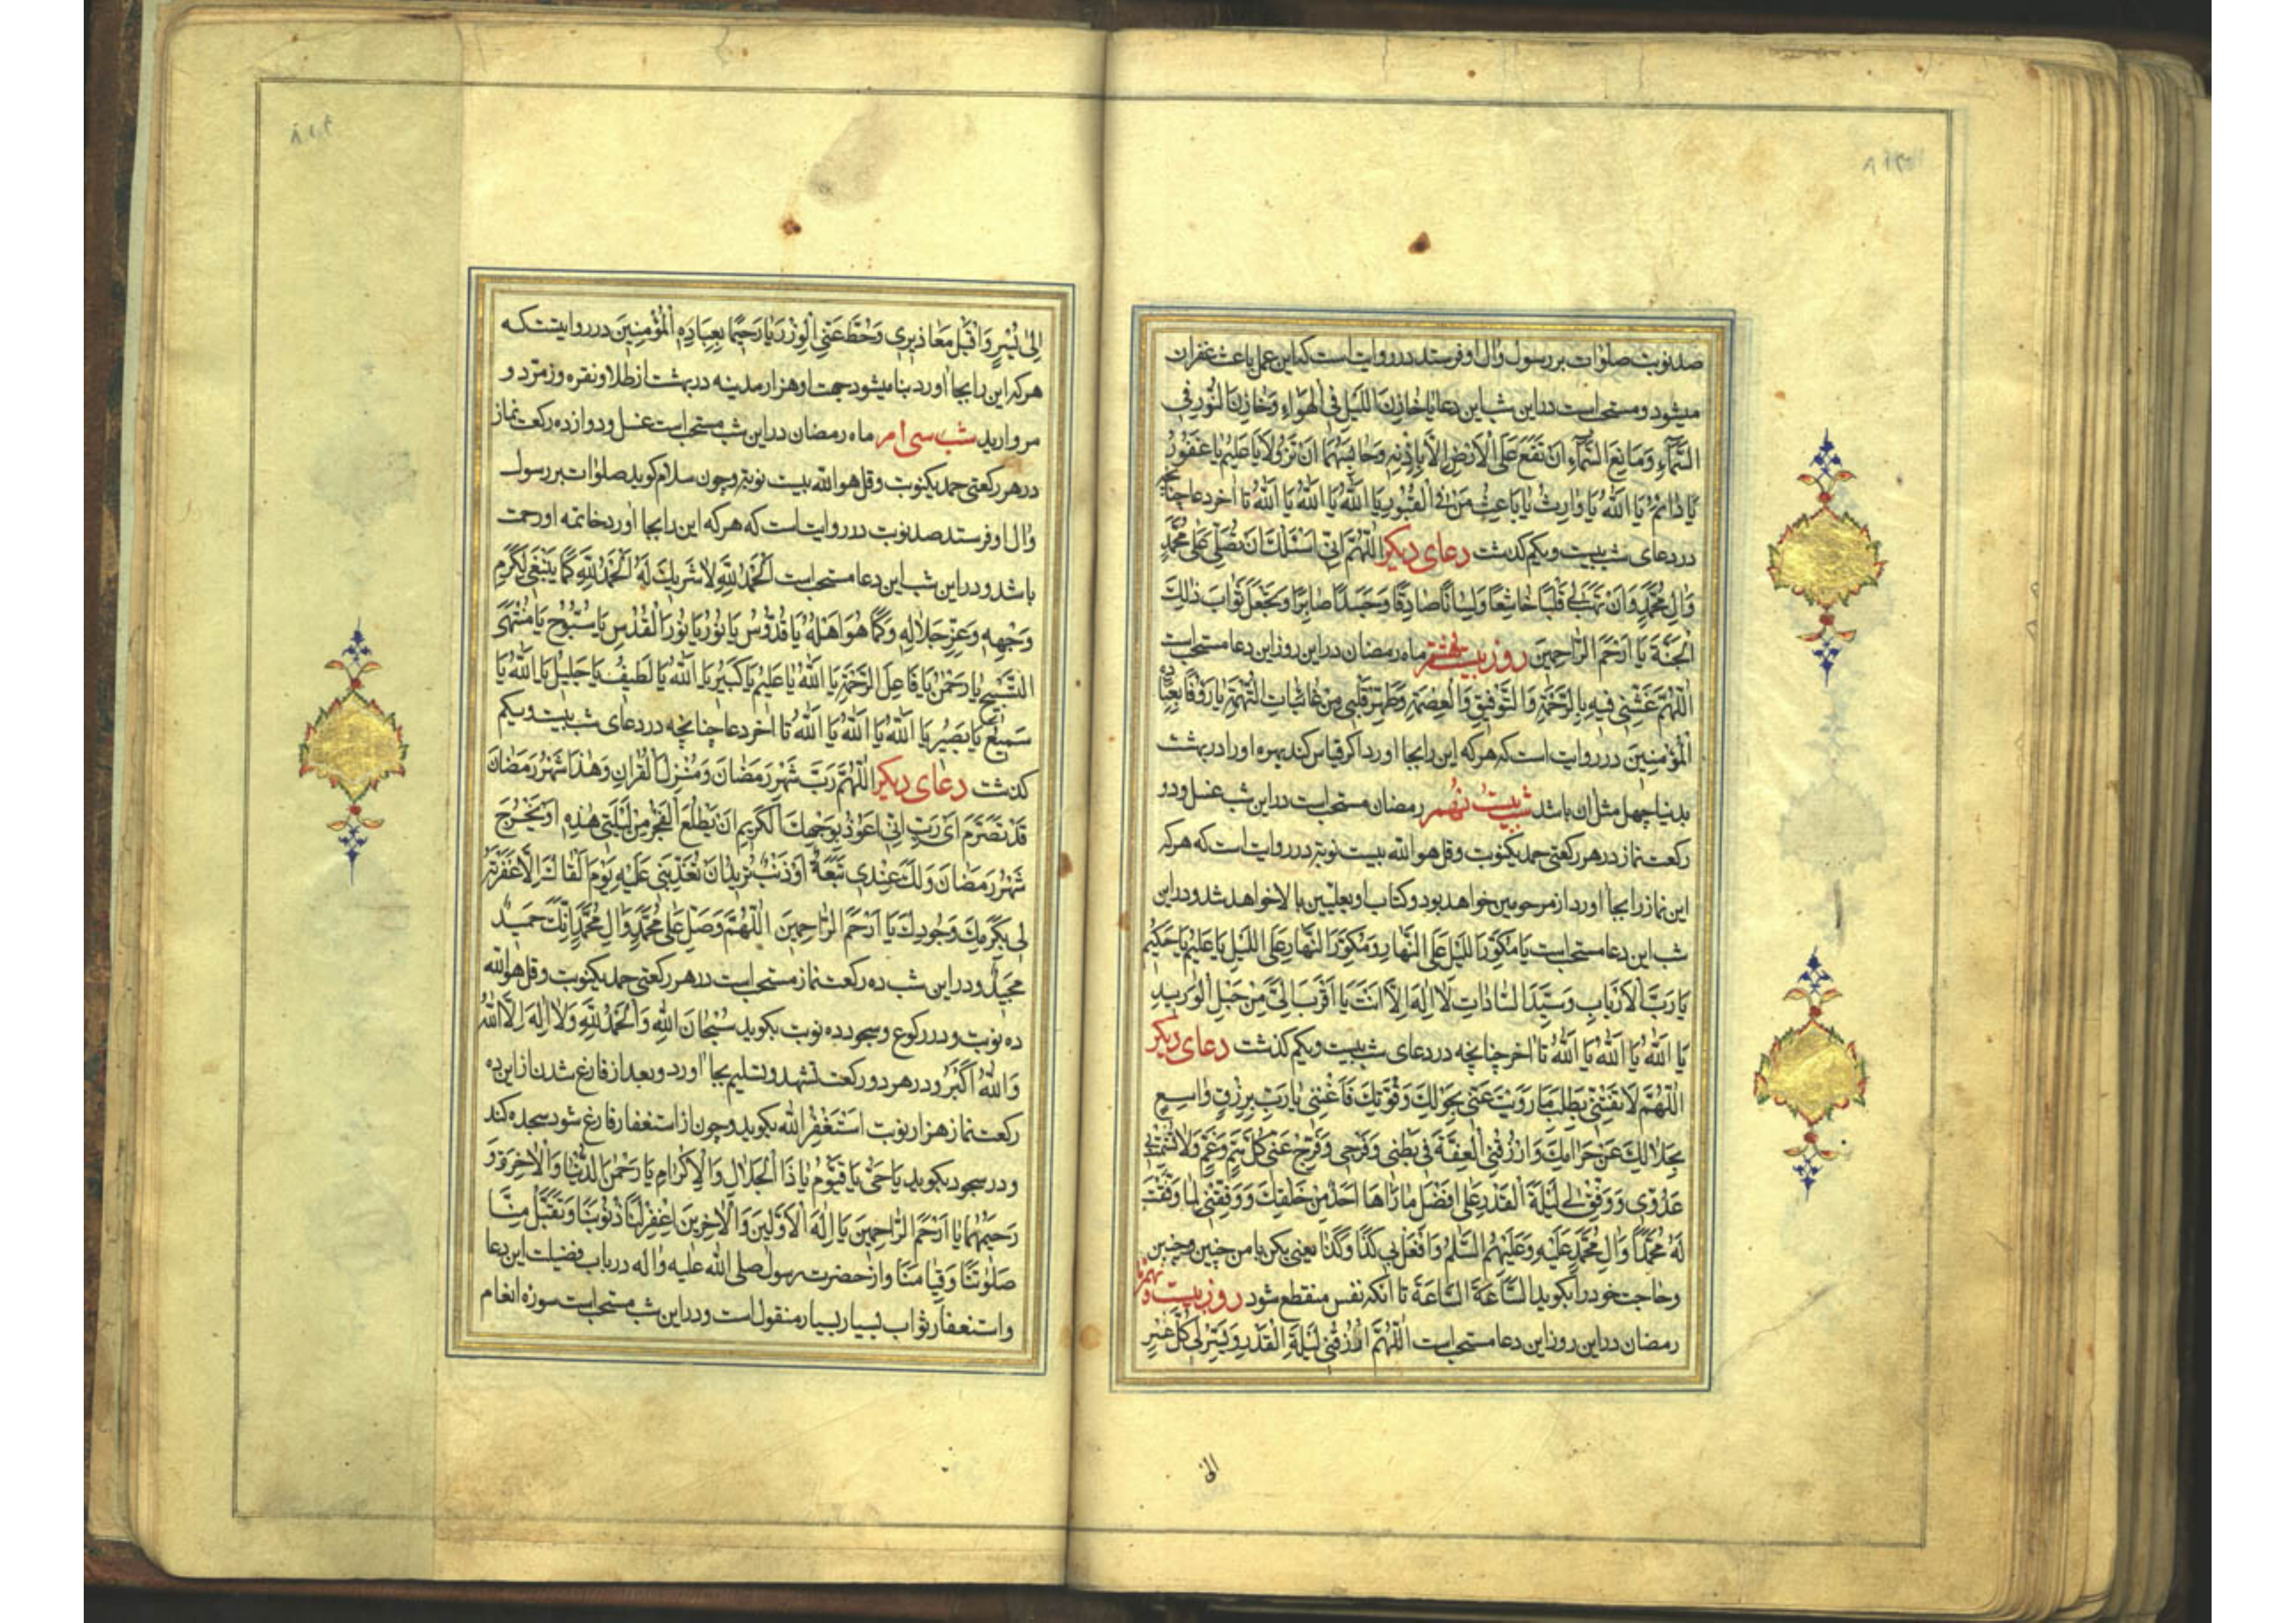 صد نوبت صلوات بر رسول و ال او فرستد در روایت است که این عمل باعث غفران
میشود و مستحب است در این شب این دعا یا خازِنَ اللَّیلِ فِی الهَواءِ وَخازِنَ النُّورِ فی
السَّمآءِ وَمانِعَ السَّمآءِ اَن تَقَعَ عَلَی الاَرضِ اِلّا بِاِذنِهِ وَحابِسَهُما اَن تَزُولا یا عَلیمُ یا غَفُورُ
یا دائِمُ یا اَللّٰهُ یا وارِثُ یا باعِثَ مَن فِی القُبُورِ یا اَللّٰهُ یا اَللّٰهُ یا اَللّٰهُ تا اخر دعا چنانچه
در دعای شب بیست و یکم کذشت دعای دیکر اَللّٰهُمَّ اِنّی اَسئَلُکَ اَن تُصَلِّیَ عَلی مُحَمَّدٍ
وَالِ مُحَمَّدٍ وَاَن تَهَبَ لی قَلبًا خاشِعًا وَلِسانًا صادِقًا وَجَسَدًا صابِرًا وَتَجعَلَ ثَوابَ ذٰلِکَ
الجَنَّةَ یا اَرحَمَ الرّاحِمینَ روز بیست هشتم ماه رمضان در این روز این دعا مستحب است
اَللّٰهُمَّ غَشِّنی فیهِ بِالرَّحمَةِ وَالتَّوفیقِ وَالعِصمَةِ وَطَهِّر قَلبی مِن غائِباتِ التُّهمَةِ یا رَؤُفًا بِعِبادِهِ
المُؤمِنینَ در روایت است که هر که این را بجا اورد اکر قیاس کند بهره او را در بهشت
بدنیا چهل مثل ان باشد شب بیست نهم رمضان مستحب است در این شب غسل و دو
رکعت نماز در هر رکعتی حمد یکنوبت و قل هو الله بیست نوبة در روایت است که هر که
این نماز را بجا اورد از مرحومین خواهد بود و کتاب او بعلیین بالا خواهد شد و در این
شب این دعا مستحب است یا مُکَوِّرَ اللَّیلِ عَلَی النَّهارِ وَمُکَوِّرَ النَّهارِ عَلَی اللَّیلِ یا عَلیمُ یا حَکیمُ
یا رَبَّ الاَربابِ وَسَیِّدَ السّاداتِ لا اِلٰهَ اِلّا اَنتَ یا اَقرَبَ اِلَیَّ مِن حَبلِ الوَریدِ
یا اَللّٰهُ یا اَللّٰهُ یا اَللّٰهُ تا اخر چنانچه در دعای شب بیست و یکم کذشت دعای دیکر
اَللّٰهُمَّ لا تَفتِنّی بِطَلَبِ ما زَوَیتَ عَنّی بِحَولِکَ وَقُوَّتِکَ فَاَغنِنی یا رَبِّ بِرِزقٍ واسِعٍ
بِحَلالِکَ عَن حَرامِکَ وَارزُقنِی العِفَّةَ فی بَطنی وَفَرجی وَفَرِّج عَنّی کُلَّ هَمٍّ وَغَمٍّ وَلا تُشمِت بی
عَدُوّی وَوَفِّق لی لَیلَةَ القَدرِ عَلی اَفضَلِ ما رَاها اَحَدٌ مِن خَلقِکَ وَوَفِّقنی لِما وَفَّقتَ
لَهُ مُحَمَّدًا وَالَ مُحَمَّدٍ عَلَیهِ وَعَلَیهِمُ السَّلامُ وَافعَل بی کَذا وَکَذا یعنی بکن با من چنین و چنین
و حاجت خود را بکوید السّاعَةَ السّاعَةَ تا انکه نفس منقطع شود روز بیست و نهم ماه
رمضان در این روز این دعا مستحب است اَللّٰهُمَّ ارزُقنی لَیلَةَ القَدرِ وَیَسِّر لی کُلَّ عُسرٍ
الی
اِلی یُسرٍ وَاقبَل مَعاذیری وَحُطَّ عَنِّی الوِزرَ یا رَحیمًا بِعِبادِهِ المُؤمِنینَ در روایتست که
هر که این را بجا اورد بنا میشود جهت او هزار مدینه در بهشت از طلا و نقره و زمرد و
مروارید شب سی ام ماه رمضان در این شب مستحب است غسل و دوازده رکعت نماز
در هر رکعتی حمد یکنوبت و قل هو الله بیست نوبة و چون سلام کوید صلوات بر رسول
و ال او فرستد صد نوبت در روایت است که هر که این را بجا اورد خاتمه او رحمت
باشد و در این شب این دعا مستحب است اَلحَمدُ لِلّٰهِ لا شَریکَ لَهُ اَلحَمدُ لِلّٰهِ کَما یَنبَغی لِکَرَمِ
وَجهِهِ وَعِزِّ جَلالِهِ وَکَما هُوَ اَهلُهُ یا قُدُّوسُ یا نُورُ یا نُورَ القُدسِ یا سُبُّوحُ یا مُنتَهَی
التَّسبیحِ یا رَحمٰنُ یا فاعِلَ الرَّحمَةِ یا اَللّٰهُ یا عَلیمُ یا کَبیرُ یا اَللّٰهُ یا لَطیفُ یا جَلیلُ یا اَللّٰهُ یا
سَمیعُ یا بَصیرُ یا اَللّٰهُ یا اَللّٰهُ یا اَللّٰهُ تا اخر دعا چنانچه در دعای شب بیست و یکم
کذشت دعای دیکر اَللّٰهُمَّ رَبَّ شَهرِ رَمَضانَ وَمُنزِلَ القُرانِ وَهٰذا شَهرُ رَمَضانَ
قَد تَصَرَّمَ اَی رَبِّ اِنّی اَعُوذُ بِوَجهِکَ الکَریمِ اَن یَطلُعَ الفَجرُ مِن لَیلَتی هٰذِهِ اَو یَخرُجَ
شَهرُ رَمَضانَ وَلَکَ عِندی تَبِعَةٌ اَو ذَنبٌ تُریدُ اَن تُعَذِّبَنی عَلَیهِ یَومَ اَلقاکَ اِلّا غَفَرتَهُ
لی بِکَرَمِکَ وَجُودِکَ یا اَرحَمَ الرّاحِمینَ اَللّٰهُمَّ وَصَلِّ عَلی مُحَمَّدٍ وَالِ مُحَمَّدٍ اِنَّکَ حَمیدٌ
مَجیدٌ و در این شب ده رکعت نماز مستحب است در هر رکعتی حمد یکنوبت و قل هو الله
ده نوبت و در رکوع و سجود ده نوبت بکوید سُبحانَ اللّٰهِ وَالحَمدُ لِلّٰهِ وَلا اِلٰهَ اِلَّا اللّٰهُ
وَاللّٰهُ اَکبَرُ و در هر دو رکعت تشهد و تسلیم بجا اورد و بعد از فارغ شدن از این ده
رکعت نماز هزار نوبت اَستَغفِرُ اللّٰه بکوید و چون از استغفار فارغ شود سجده کند
و در سجود بکوید یا حَیُّ یا قَیُّومُ یا ذَا الجَلالِ وَالاِکرامِ یا رَحمٰنَ الدُّنیا وَالاخِرَةِ وَ
رَحیمَهُما یا اَرحَمَ الرّاحِمینَ یا اِلٰهَ الاَوَّلینَ وَالاخِرینَ اِغفِر لَنا ذُنُوبَنا وَتَقَبَّل مِنّا
صَلوٰتَنا وَقِیامَنا و از حضرت رسول صلی الله علیه و اله در باب فضیلت این دعا
و استغفار ثواب بسیار بسیار منقول است و در این شب مستحب است سوره انعام